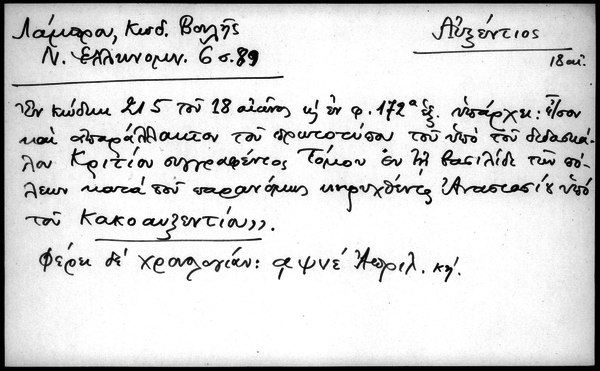 Λάμπρου, Κωδ. Βουλῆς
Αὐξέντιος
Ν. Ἑλληνομν. 6 σ. 89
18 αἰ.
Ἐν κώδικι 215 τοῦ 18 αἰῶνος κ̣ ἐν φ. 172α ἑξ. ὑπάρχει: «ἴσον
καὶ ἀπαράλλακτον τοῦ πρωτοτύπου τοῦ ὑπὸ τοῦ διδασκά-
λου Κριτίου συγγραφέντος Τόμου ἐν τῇ βασιλίδι τῶν πό-
λεων κατὰ τοῦ παρανόμως κηρυχθέντος Ἀναβαπτισμοῦ ὑπὸ
τοῦ Κακοαυξεντίου».
Φέρει δὲ χρονολογίαν: αψνέ Ἀπριλ. κη΄.